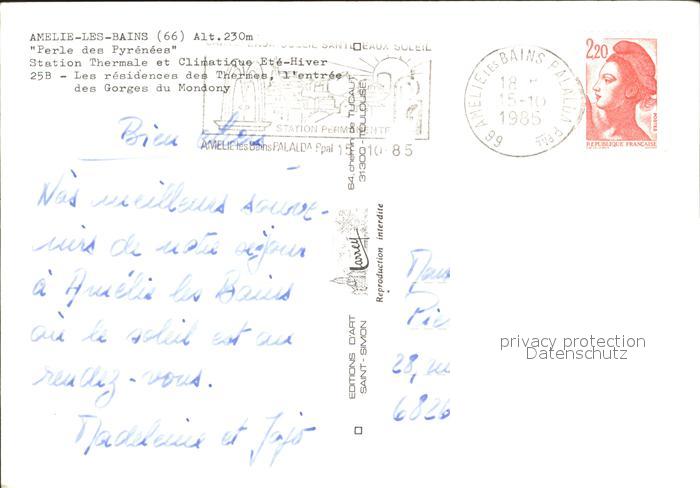 AMELIE-LES-BAINS (66) Alt.230m
"Perle des Pyrénées"
Station Thermale et Climatique Eté-Hiver
25B - Les résidences des Thermes, l'entrée
des Gorges du Mondony
SOLEIL SANTE EAUX SOLEIL
STATION PERMANENTE
AMELIE les Bains PALALDA Ppal 15-010-85
66 AMELIE les BAINS PALALDA Ppal
18 H
15-10
1985
2,20
REPUBLIQUE FRANÇAISE
Nos meilleurs souve-
nirs de notre séjour
à Amélie les Bains
où le soleil est au
rendez-vous.
Madeleine et Jojo
64, chemin de TUCAUT
31300 - TOULOUSE
Larrey
Reproduction interdite
EDITIONS D'ART
SAINT-SIMON
28,
6826
privacy protection
Datenschutz